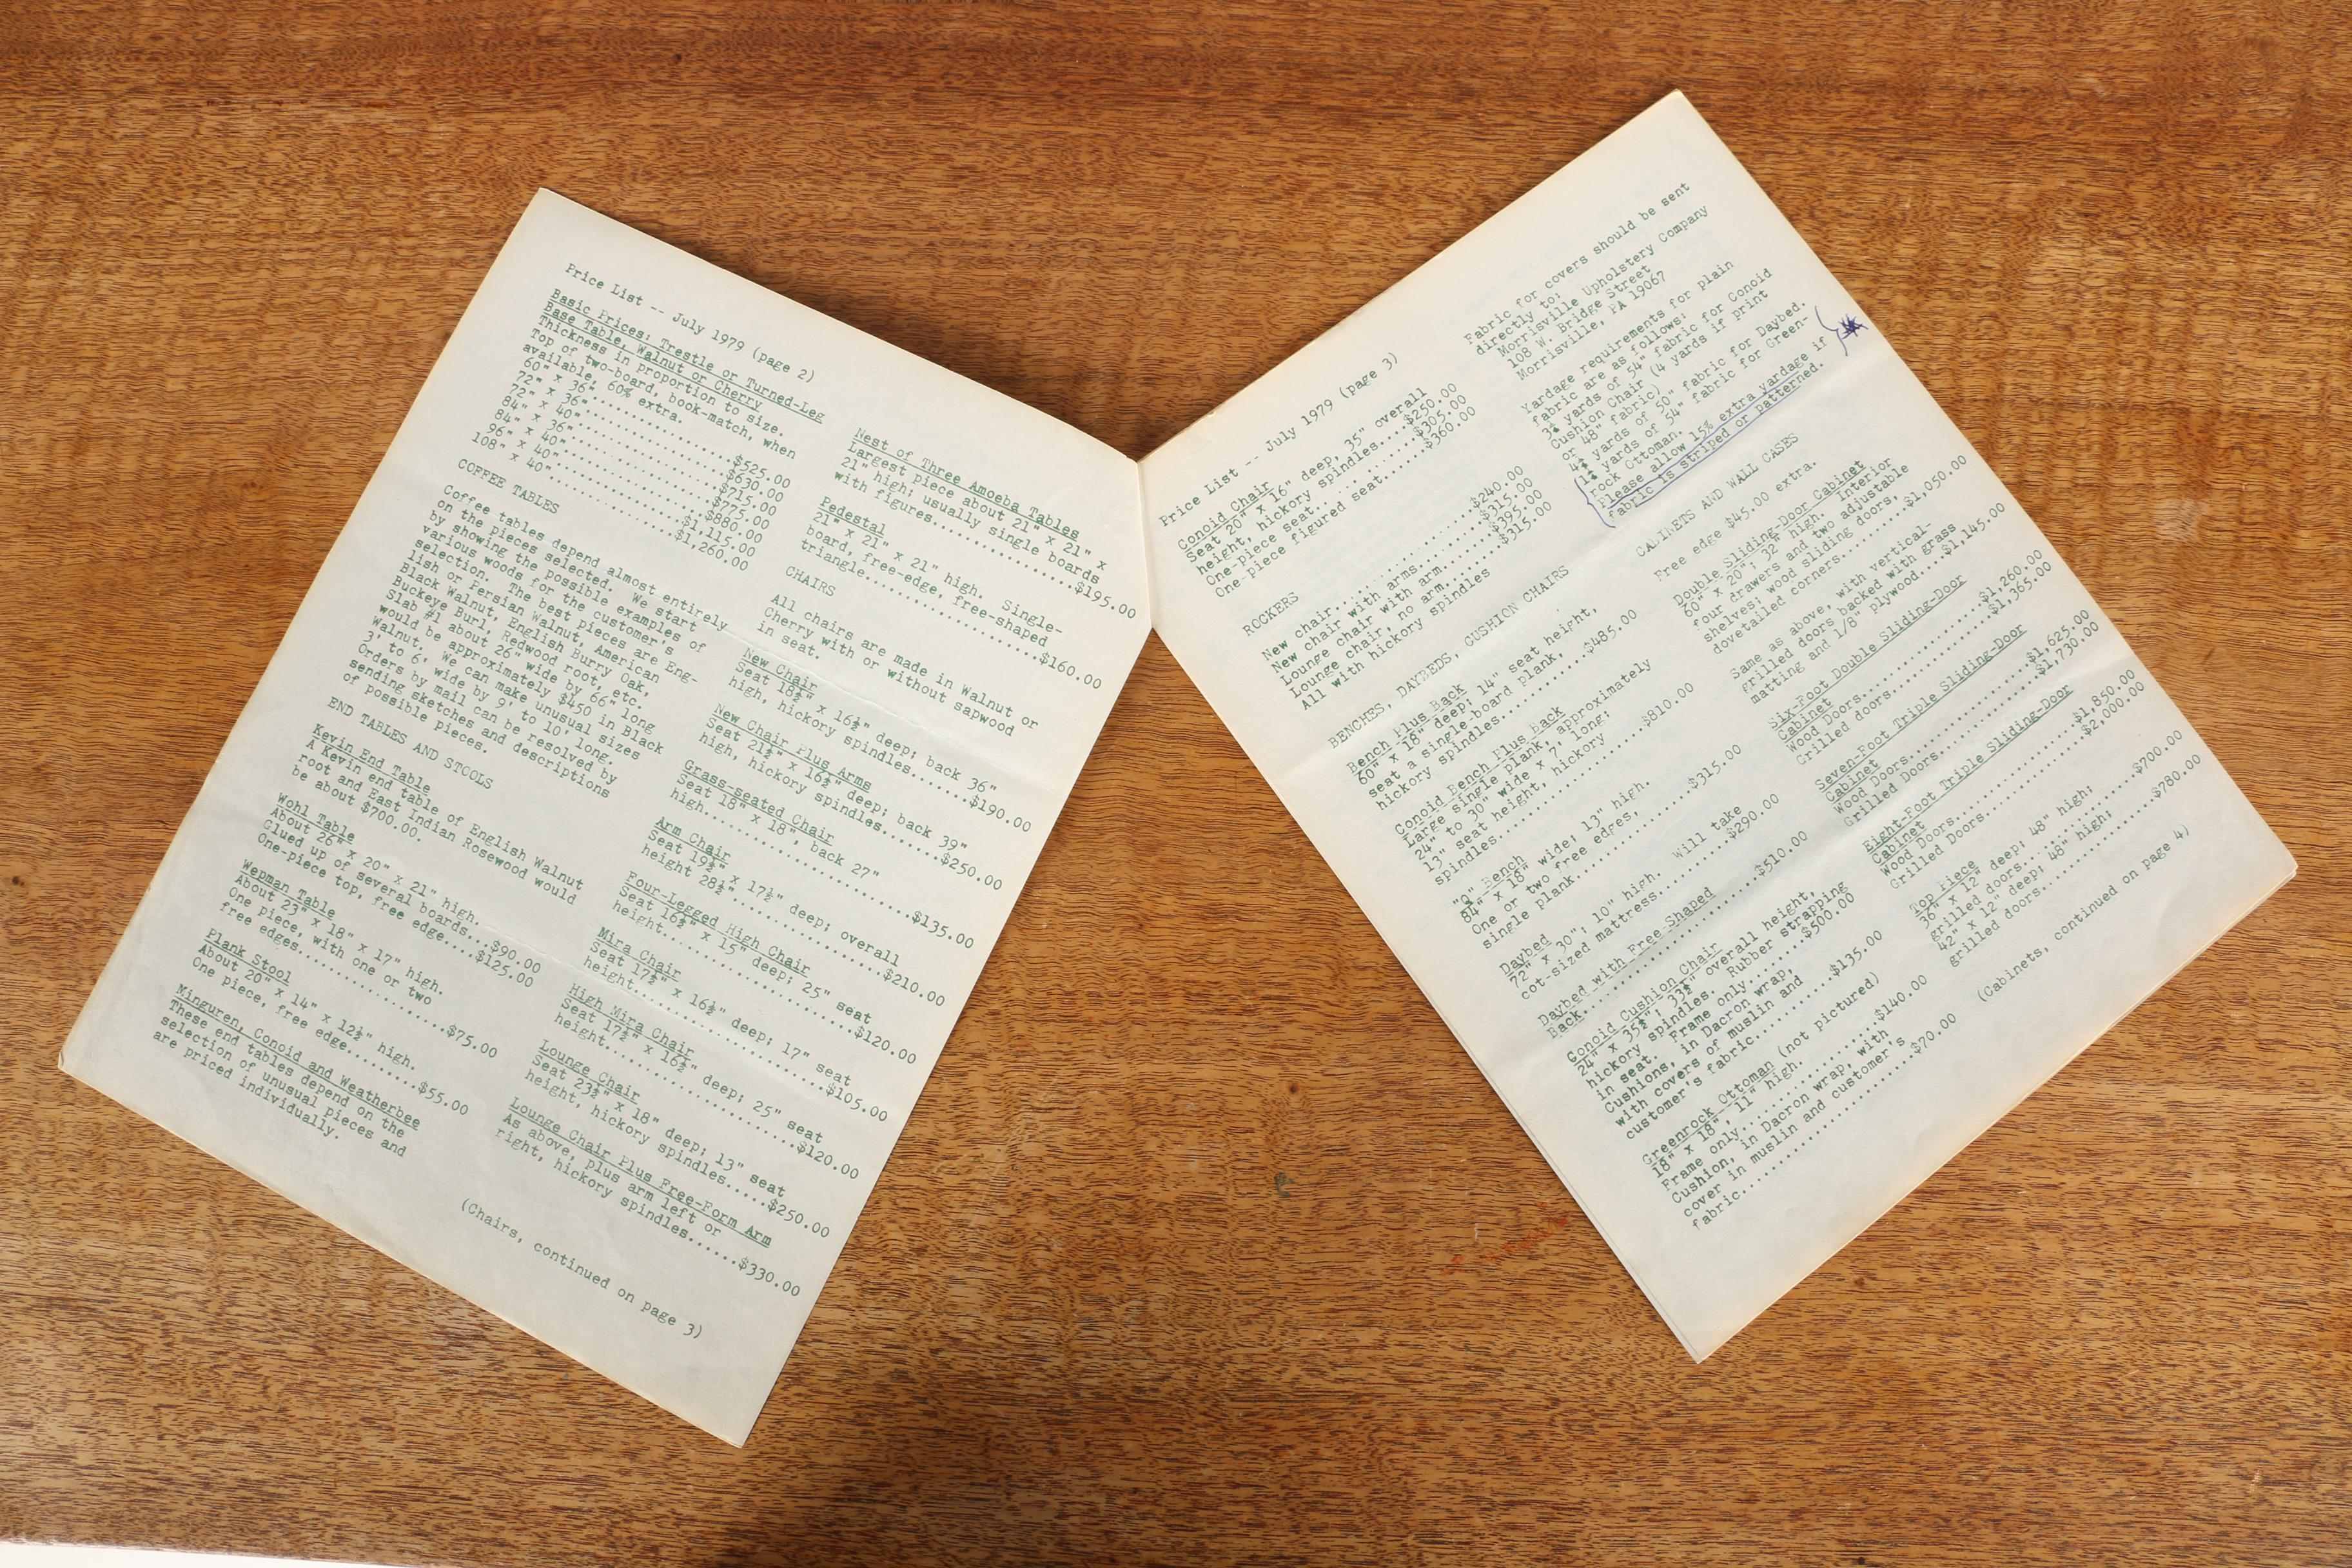 Price List -- July 1979 (page 2)
Basic Prices: Trestle or Turned-Leg
Base Table, Walnut or Cherry
Thickness in proportion to size.
Top of two-board, book-match, when
available, 60% extra.
60" x 36"....................$525.00
72" x 36"....................$630.00
72" x 40"....................$715.00
84" x 36"....................$775.00
84" x 40"....................$880.00
96" x 40"..................$1,115.00
108" x 40".................$1,260.00
COFFEE TABLES
Coffee tables depend almost entirely
on the pieces selected. We start
by showing the possible examples of
various woods for the customer's
selection. The best pieces are Eng-
lish or Persian Walnut, American
Black Walnut, English Burry Oak,
Buckeye Burl, Redwood root, etc.
Slab #1 about 26" wide by 66" long
would be approximately $450 in Black
Walnut. We can make unusual sizes
3' to 6' wide by 9' to 10' long.
Orders by mail can be resolved by
sending sketches and descriptions
of possible pieces.
END TABLES AND STOOLS
Kevin End Table
A Kevin end table of English Walnut
root and East Indian Rosewood would
be about $700.00.
Wohl Table
About 26" x 20" x 21" high.
Glued up of several boards...$90.00
One-piece top, free edge....$125.00
Wepman Table
About 23" x 18" x 17" high.
One piece, with one or two
free edges...................$75.00
Plank Stool
About 20" x 14" x 12½" high.
One piece, free edge.........$55.00
Minguren, Conoid and Weatherbee
These end tables depend on the
selection of unusual pieces and
are priced individually.
Nest of Three Amoeba Tables
Largest piece about 21" x 21" x
21" high; usually single boards
with figures................$195.00
Pedestal
21" x 21" x 21" high. Single-
board, free-edge, free-shaped
triangle....................$160.00
CHAIRS
All chairs are made in Walnut or
Cherry with or without sapwood
in seat.
New Chair
Seat 18½" x 16½" deep; back 36"
high, hickory spindles......$190.00
New Chair Plus Arms
Seat 21½" x 16½" deep; back 39"
high, hickory spindles......$250.00
Grass-seated Chair
Seat 18" x 18", back 27"
high........................$135.00
Arm Chair
Seat 19½" x 17½" deep; overall
height 28½".................$210.00
Four-Legged High Chair
Seat 16½" x 15" deep; 25" seat
height......................$120.00
Mira Chair
Seat 17½" x 16½" deep; 17" seat
height......................$105.00
High Mira Chair
Seat 17½" x 16½" deep; 25" seat
height......................$120.00
Lounge Chair
Seat 23½" x 18" deep; 13" seat
height, hickory spindles.....$250.00
Lounge Chair Plus Free-Form Arm
As above, plus arm left or
right, hickory spindles......$330.00
(Chairs, continued on page 3)
Price List -- July 1979 (page 3)
Conoid Chair
Seat 20" x 16" deep, 35" overall
height, hickory spindles....$250.00
One-piece seat..............$305.00
One-piece figured seat......$360.00
ROCKERS
New chair...................$240.00
New chair with arms.........$315.00
Lounge chair with arm.......$395.00
Lounge chair, no arm........$315.00
All with hickory spindles
BENCHES, DAYBEDS, CUSHION CHAIRS
Bench Plus Back
60" x 18" deep; 14" seat height,
seat a single-board plank,
hickory spindles............$485.00
Conoid Bench Plus Back
Large single plank, approximately
24" to 30" wide x 7' long;
13" seat height, hickory
spindles....................$810.00
"Q" Bench
84" x 18" wide; 13" high.
One or two free edges,
single plank................$315.00
Daybed
72" x 30", 10" high. Will take
cot-sized mattress..........$290.00
Daybed with Free-Shaped
Back........................$510.00
Conoid Cushion Chair
24" x 35½"; 33½" overall height,
hickory spindles. Rubber strapping
in seat. Frame only.........$500.00
Cushions, in Dacron wrap,
with covers of muslin and
customer's fabric...........$135.00
Greenrock Ottoman (not pictured)
18" x 18", 11" high.
Frame only..................$140.00
Cushion, in Dacron wrap, with
cover in muslin and customer's
fabric.......................$70.00
Fabric for covers should be sent
directly to:
Morrisville Upholstery Company
108 W. Bridge Street
Morrisville, PA 19067
Yardage requirements for plain
fabric are as follows:
yards of 54" fabric for Conoid
Cushion Chair (4 yards if print
or 48" fabric)
yards of 50" fabric for Daybed.
yards of 54" fabric for Green-
rock Ottoman.
Please allow 15% extra yardage if
fabric is striped or patterned.
CABINETS AND WALL CASES
Free edge $45.00 extra.
Double Sliding-Door Cabinet
60" x 20"; 32" high. Interior
four drawers and two adjustable
shelves; wood sliding doors,
dovetailed corners........$1,050.00
Same as above, with vertical-
grilled doors backed with grass
matting and 1/8" plywood....$1,145.00
Six-Foot Double Sliding-Door
Cabinet
Wood Doors................$1,260.00
Grilled doors.............$1,365.00
Seven-Foot Triple Sliding-Door
Cabinet
Wood Doors................$1,625.00
Grilled Doors.............$1,730.00
Eight-Foot Triple Sliding-Door
Cabinet
Wood Doors................$1,850.00
Grilled Doors.............$2,000.00
Top Piece
36" x 12" deep; 48" high;
grilled doors...............$700.00
42" x 12" deep; 48" high;
grilled doors...............$780.00
(Cabinets, continued on page 4)